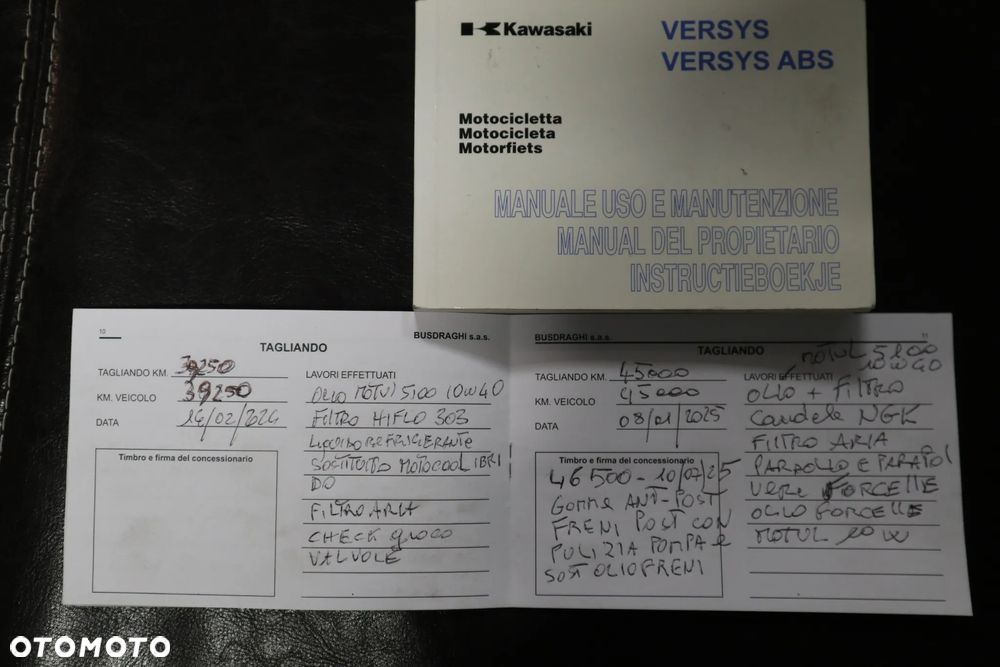 Kawasaki
VERSYS
VERSYS ABS
Motocicletta
Motocicleta
Motorfiets
MANUALE USO E MANUTENZIONE
MANUAL DEL PROPIETARIO
INSTRUCTIEBOEKJE
10
BUSDRAGHI s.a.s.
TAGLIANDO
TAGLIANDO KM. 39250
KM. VEICOLO 39250
DATA 14/02/2024
Timbro e firma del concessionario
LAVORI EFFETTUATI
OLIO MOTUL 5100 10W40
FILTRO HIFLO 303
LIQUIDO REFRIGERANTE
SOSTITUITO MOTOCOOL IBRI
DO
FILTRO ARIA
CHECK GIOCO
VALVOLE
BUSDRAGHI s.a.s.
11
TAGLIANDO
TAGLIANDO KM. 45000
KM. VEICOLO 45000
DATA 08/01/2025
Timbro e firma del concessionario
46500 - 10/07/25
GOMME ANT-POST
FRENI POST CON
PULIZIA POMPA e
SOST OLIO FRENI
MOTUL 5100
10W40
LAVORI EFFETTUATI
OLIO + FILTRO
Candele NGK
FILTRO ARIA
PARAOLIO E PARAPOL
VERE FORCELLE
OLIO FORCELLE
MOTUL 10W
OTOMOTO